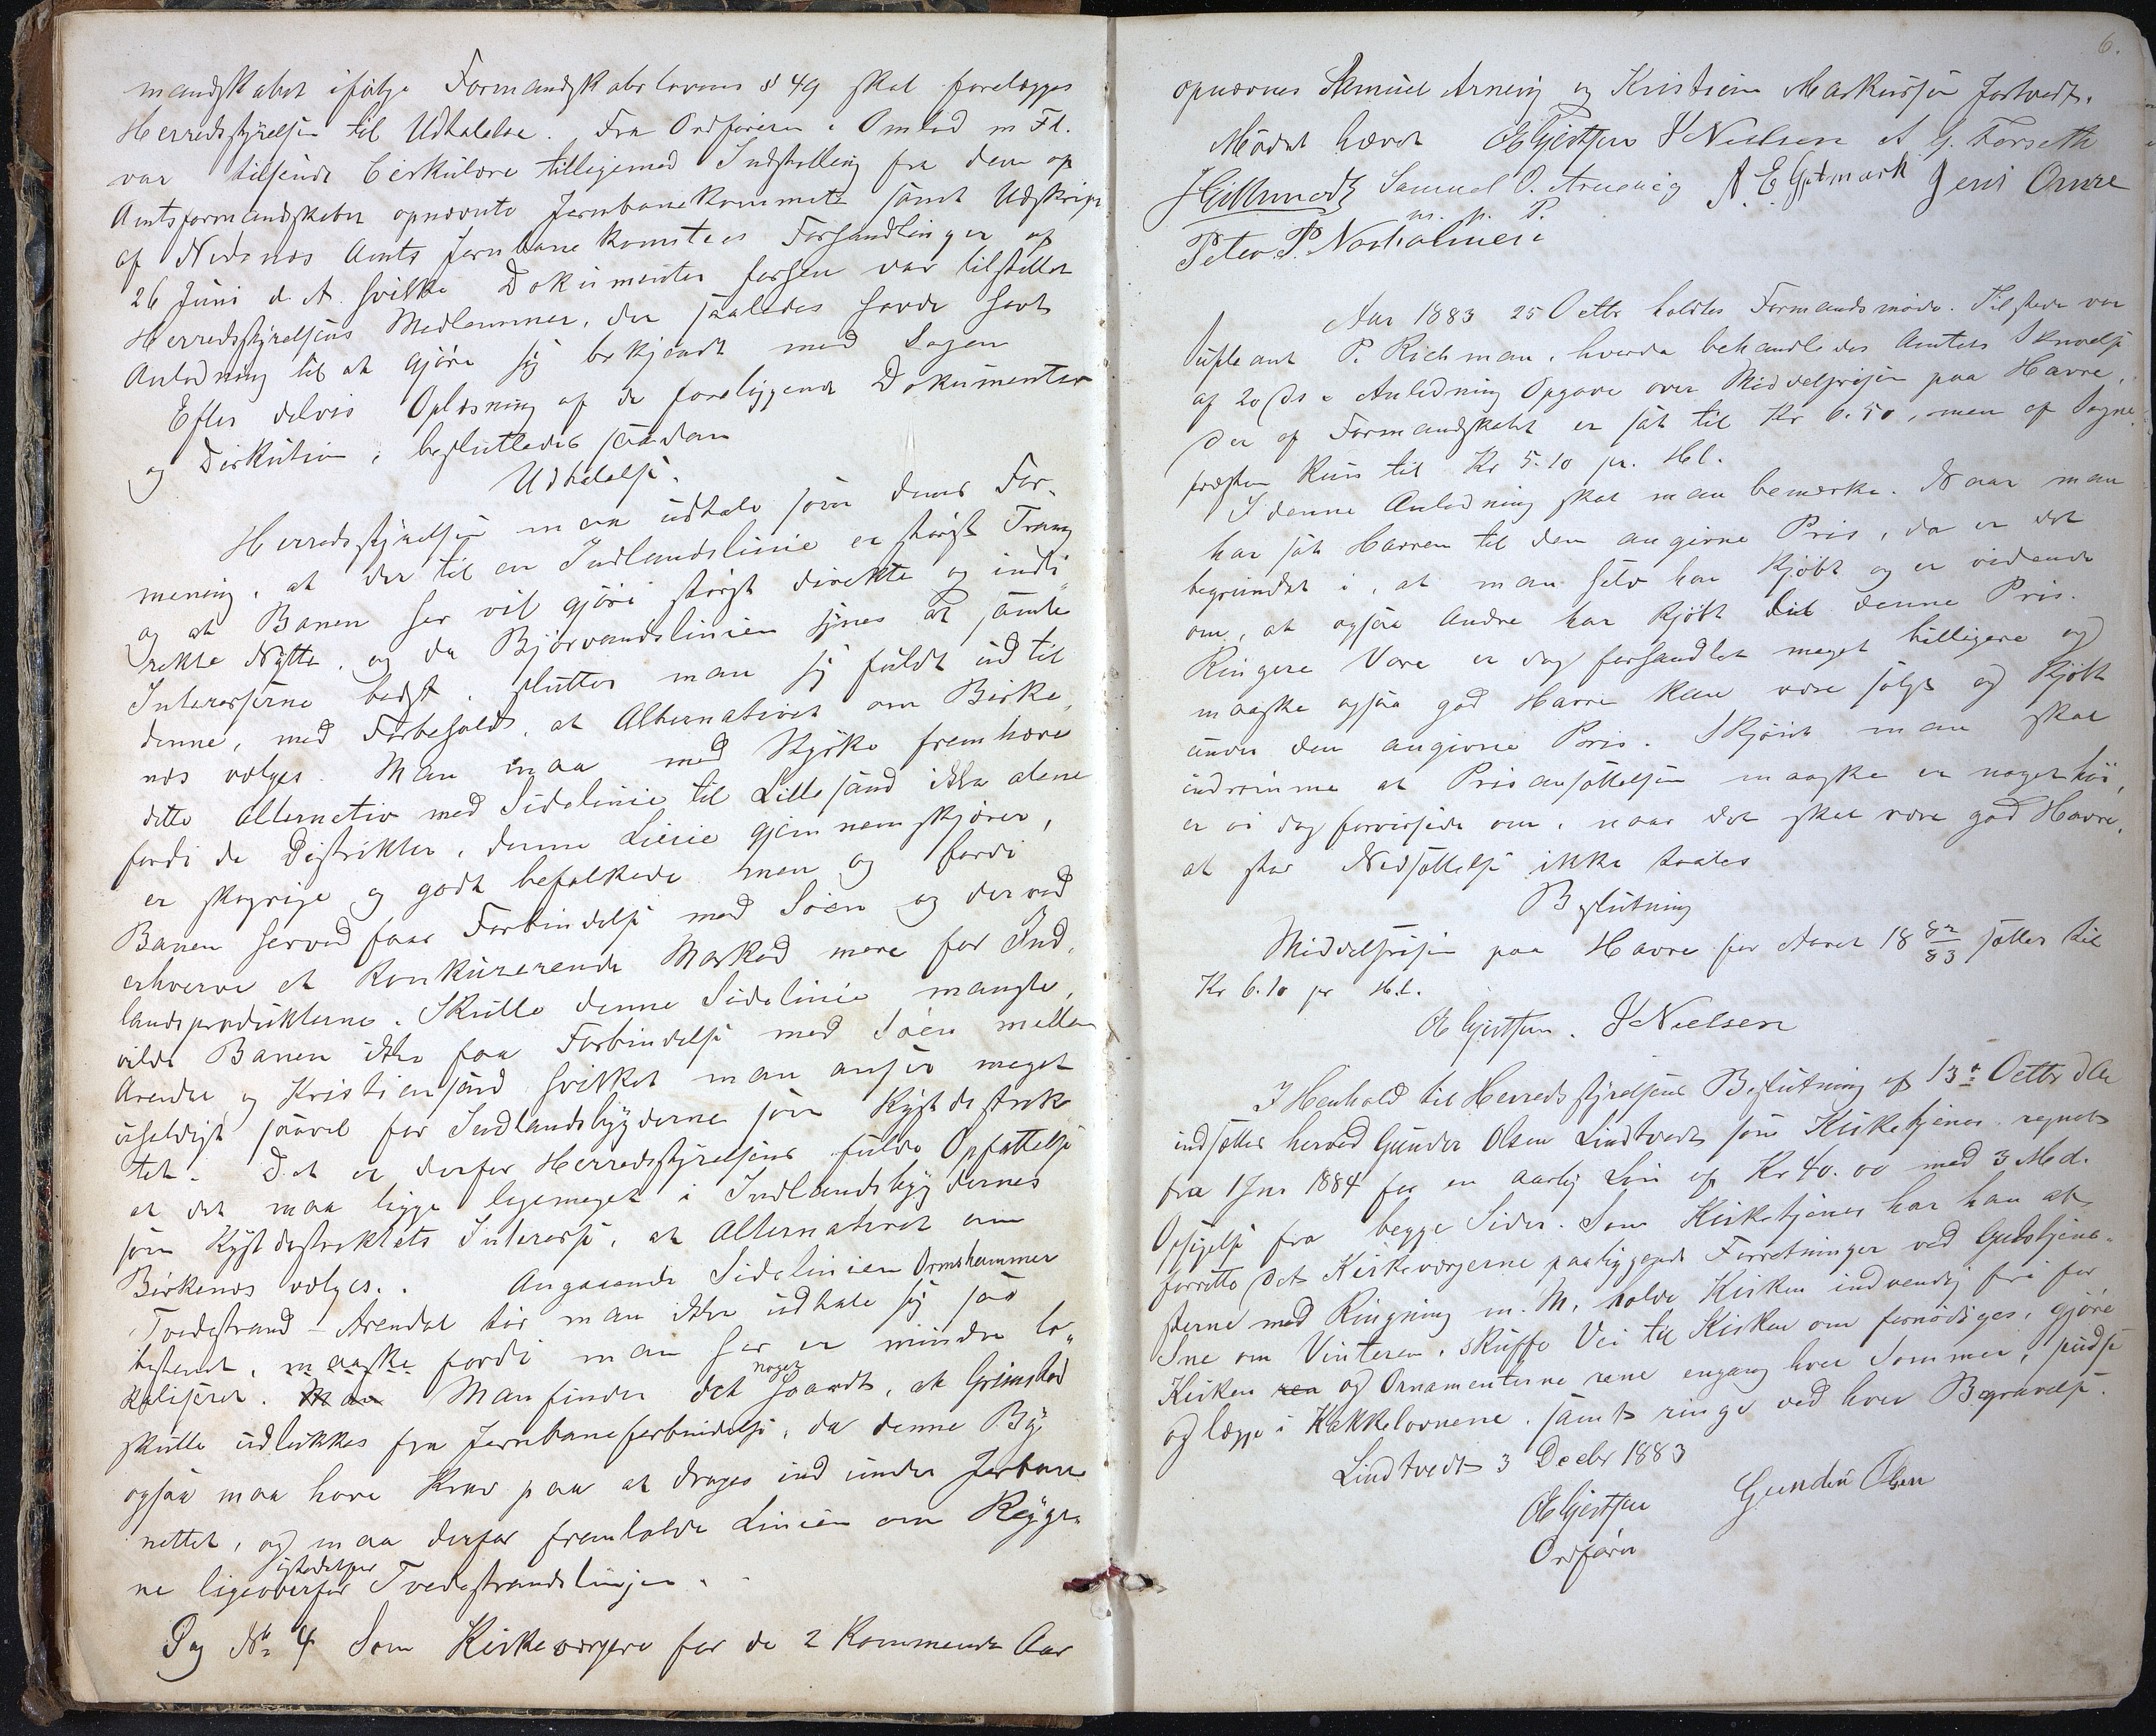 mandskabet ifølge Formandskabslovens § 49 skal forelægges
Herredsstyrelsen til Udtalelse. Fra Ordføreren i Omlad m Fl.
var tilsendt Cirkulære tilligemed Indstilling fra den af
Amtsformandskabet opnævnte Jernbanekommite samt Udskrift
af Nedenæs Amts Jernbanekomitees Forhandlinger af
26 Juni d. A. hvilke Dokumenter forhen var tilstillet
Herredsstyrelsens Medlemmer, der saaledes havde havt
Anledning til at gjøre sig bekjendt med Sagen
Efter delvis Oplæsning af de foreliggende Dokumenter
og Diskution, besluttedes saadan
Udtalelse.
Herredsstyrelsen maa udtale som dens For-
mening, at der til en Indlandslinie er størst Trang
og at Banen her vil gjøre størst direkte og indi-
rekte Nytte, og da Bjorvandslinien synes at samle
Interesserne bedst, slutter man sig fuldt ud til
denne, med Forbehold, at Alternativet om Birke-
næs vælges. Man maa med Styrke fremhæve
dette Alternativ med Sidelinie til Lillesand ikke alene
fordi de Distrikter, denne Linie gjennemskjærer,
er skogrige og godt befolkede men og fordi
Banen herved faar Forbindelse med Søen og derved
erhverve et konkurerende Marked mere for Ind-
landsprodukterne. Skulle denne Sidelinie mangle,
vilde Banen ikke faa Forbindelse med Søen mellem
Arendal og Kristiansand hvilket man anser meget
uheldigt saavel for Indlandsbygderne som Kystdistrik-
tet. Det er derfor Herredsstyrelsens fulde Opfattelse
at det maa ligge ligemeget i Indlandsbygdernes
som Kystdistriktets Interesse, at Alternativet om
Birkenæs vælges. Angaaende Sidelinien Ormshammer
Tvedestrand - Arendal tør man ikke udtale sig saa
bestemt, maaske fordi man her er mindre lo-
kaliseret. Man Man finder det noget haardt, at Grimstad
skulle udlukkes fra Jernbaneforbindelse, da denne By
ogsaa maa have Krav paa at drages ind under Jerbane
nettet, og maa derfor fremholde Linien om Rygge-
ne ligeoverfor istedetfor Tvedestrandslinjen.
Sag No 4 Som Kirkeværgere for de 2 kommende Aar
6.
opnævnes Samuel Arnevig og Kristian Markussen Fortvedt.
Mødet hævet OE Gjertsen J Nielsen A G. Forseth
Samuel O. Arnevig A. E. Grimark Jens Omre
m. p. P.
Peter P. Norholmen
Aar 1883 25 Octbr holdtes Formandsmøde. Tilstede var
Supleant P. Richman, hvorda behandledes Amtets Skrivelse
af 20 ds i Anledning Opgave over Middelprisen paa Havre,
der af Formandskabet er sat til Kr 6.50, men af Sogne-
præsten kuns til Kr 5.10 pr. Hl.
I denne Anledning skal man bemærke. Naar man
har sat Havren til den angivne Pris, da er det
begrundet i, at man selv har kjøbt og er vidende
om, at ogsaa Andre har kjøbt til denne Pris.
Ringere Vare er dog forhandlet meget billigere og
maaske ogsaa god Havre kan være solgt og kjøbt
under den angivne Pris. Skjønt man skal
indrømme at Prisansættelsen maaske er noget høi,
er vi dog forvissede om, naar det skal være god Havre,
at stor Nedsættelse ikke taales
Beslutning
Middelprisen paa Havre for Aaret 18 82/83 sættes til
Kr 6.10 pr Hl.
OE Gjertsen. J Nielsen
I Henhold til Herredsstyrelsens Beslutning af 13de Octbr dA
indsættes herved Gunder Olsen Lindtvedt som Kirketjener regnet
fra 1 Jnr 1884 for en aarlig Løn af Kr 40.00 med 3 Md.
Opsigelse fra begge Sider. Som Kirketjener har han at
forrette det Kirkeværgerne paaliggende Forretninger ved Gudstjene-
sterne med Ringning m. M, holde Kirken indvendig fri for
Sne om Vinteren, skuffe Vei til Kirken om fornødiges, gjøre
Kirken ren og Ornamenterne rene engang hver Sommer, pudse
og lægge i Kakkelovnene, samt ringe ved hver Begravelse.
Lindtvedt 3 Decbr 1883
OE Gjertsen Gunder Olsen
Ordfører